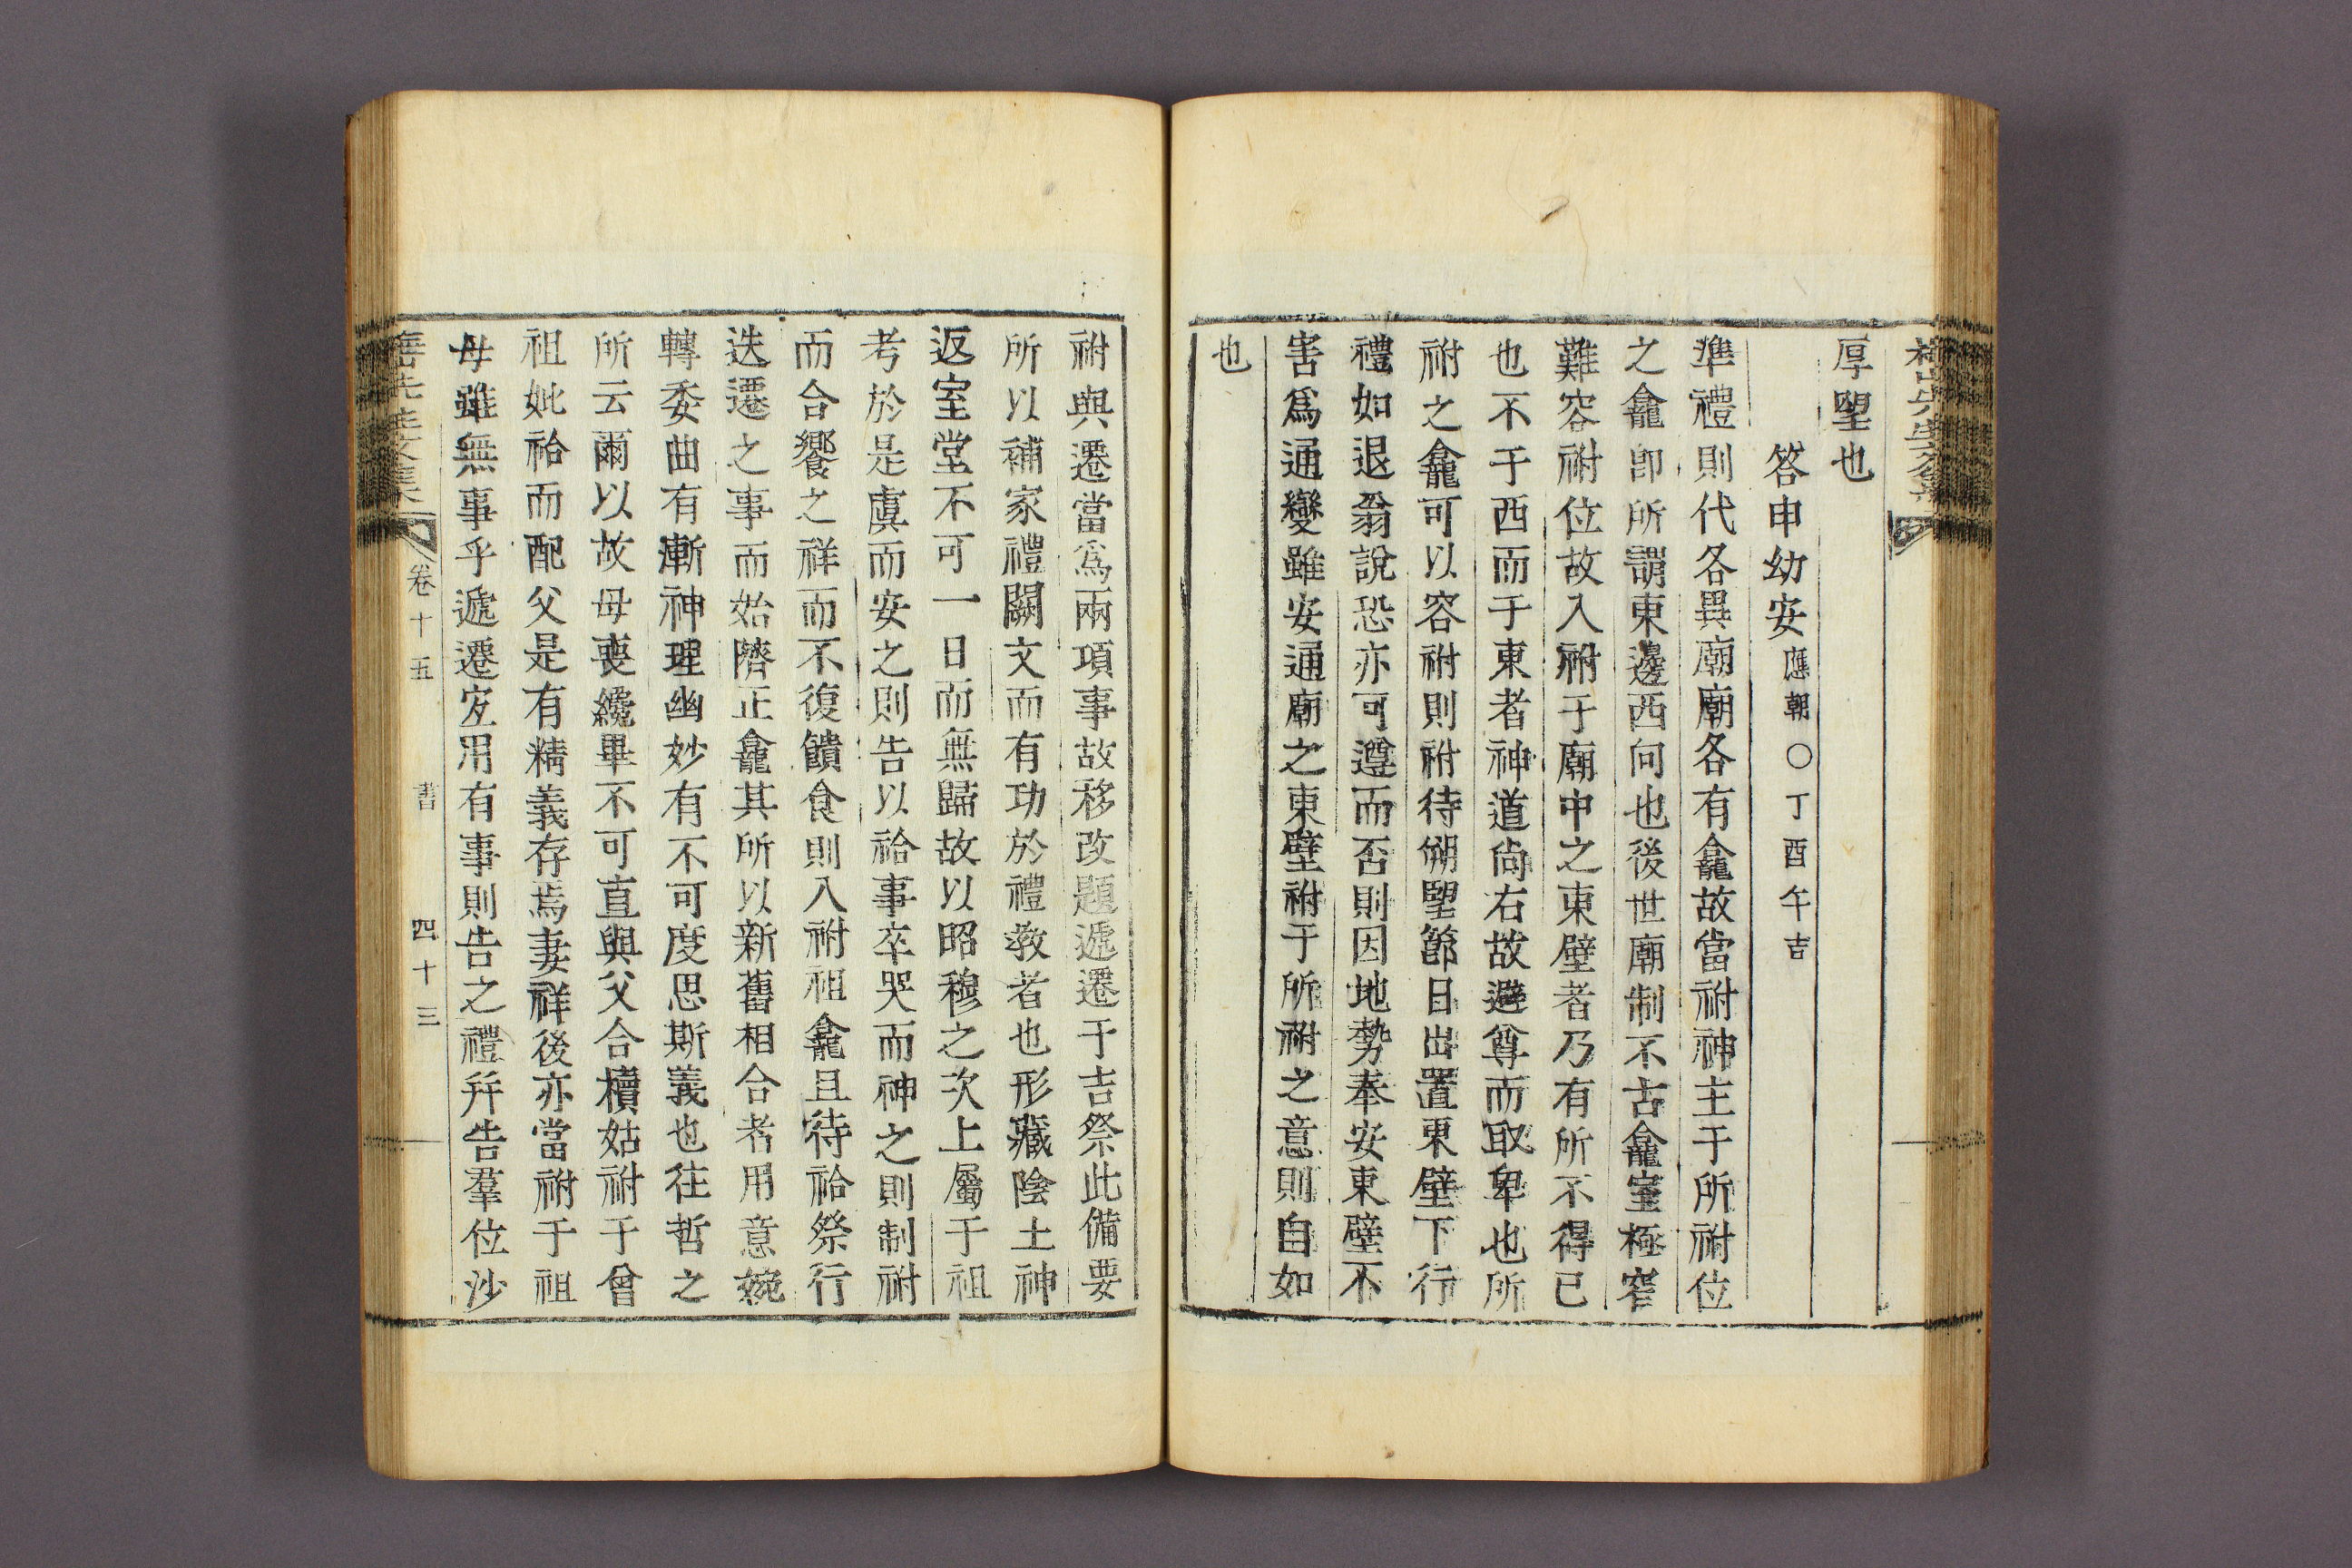 厚望也
答申幼安應朝○丁酉午吉
準禮則代各異廟廟各有龕故當祔神主于所祔位
之龕卽所謂東邊西向也後世廟制不古龕室極窄
難容祔位故入祔于廟中之東壁者乃有所不得已
也不于西而于東者神道尙右故避尊而取卑也所
祔之龕可以容祔則祔待朔望節日出置東壁下行
禮如退翁說恐亦可遵而否則因地勢奉安東壁不
害爲通變雖安通廟之東壁祔于所祔之意則自如
也
祔與遷當爲兩項事故移改題遞遷于吉祭此備要
所以補家禮闕文而有功於禮敎者也形藏陰土神
返室堂不可一日而無歸故以昭穆之次上屬于祖
考於是虞而安之則告以祫事卒哭而神之則制祔
而合饗之祥而不復饋食則入祔祖龕且待祫祭行
迭遷之事而始躋正龕其所以新舊相合者用意婉
轉委曲有漸神理幽妙有不可度思斯義也往哲之
所云爾以故母喪纔畢不可直與父合櫝姑祔于曾
祖妣祫而配父是有精義存焉妻祥後亦當祔于祖
母雖無事乎遞遷宜用有事則告之禮幷告羣位沙
卷十五 書 四十三